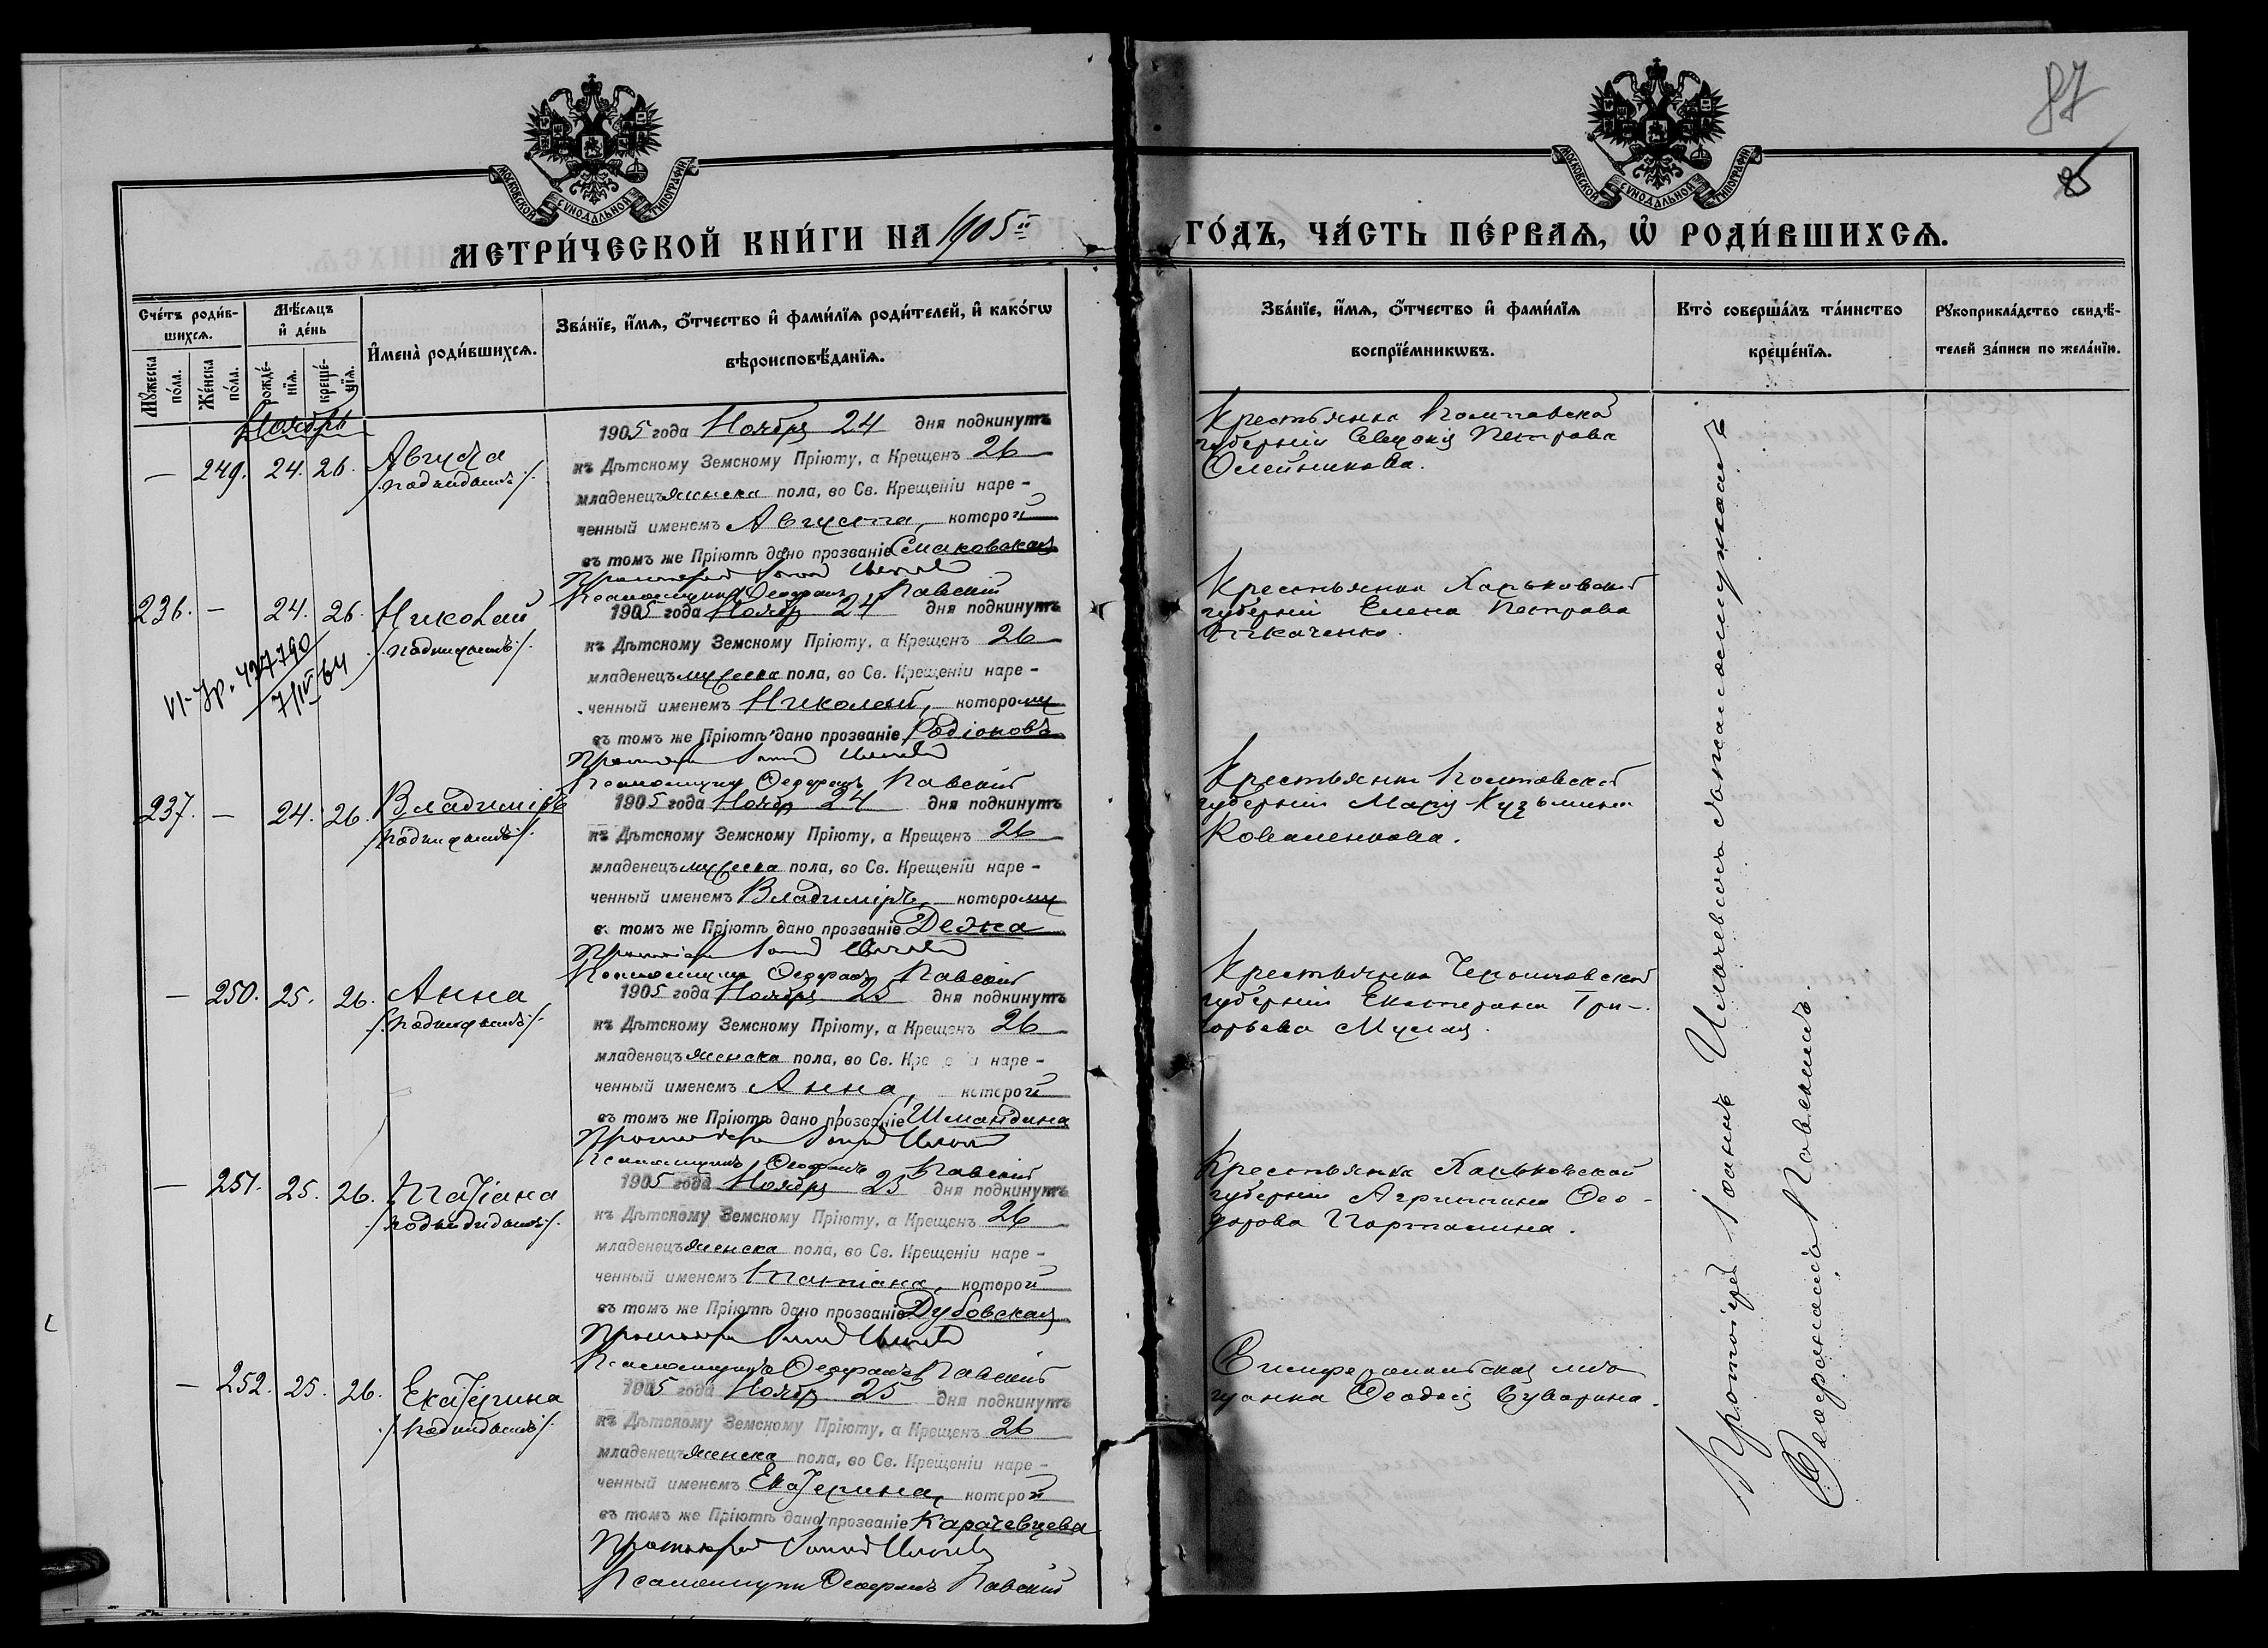 87
МОСКОВСКОЙ СѴНОДАЛЬНОЙ ТИПОГРАФІИ
МОСКОВСКОЙ СѴНОДАЛЬНОЙ ТИПОГРАФІИ
МЕТРИ́ЧЕСКОЙ КНИ́ГИ НА 1905й ГО́ДЪ, ЧА́СТЬ ПЕ́РВАѦ, Ѡ҆ РОДИ́ВШИХСѦ.
Сче́тъ роди́в-
шихсѧ.
Мꙋ́жеска по́ла.
Же́нска по́ла.
Мѣ́сѧцъ
и҆ де́нь
рожде́-
нїѧ.
креще́-
нїѧ.
И҆мена̀ роди́вшихсѧ.
Зва́нїе, и҆́мѧ, ѻ҆́тчество и҆ фами́лїѧ роди́телей, и҆ како́гѡ
вѣроисповѣ́данїѧ.
Зва́нїе, и҆́мѧ, ѻ҆́тчество и҆ фами́лїѧ
воспрїе́мникѡвъ.
Кто̀ соверша́лъ та́инство
креще́нїѧ.
Рꙋкоприкла́дство свидѣ́-
телей за́писи по жела́нїю.
Ноябрь
— 249. 24. 26. Августа
/:подкидышъ:/
1905 года Ноября 24 дня подкинутъ
къ Дѣтскому Земскому Пріюту, а Крещенъ 26
младенецъ женска пола, во Св. Крещеніи наре-
ченный именемъ Августа, которой
въ томъ же Пріютѣ дано прозваніе Смаковская
Протоіерей Іоаннъ
Псаломщикъ Ѳеофанъ Павскій
Крестьянка Полтавской
губерніи Евдокія Петрова
Олейникова.
236. — 24. 26. Николай
/:подкидышъ:/
VI-УР. 427790
7/IV 64
1905 года Ноября 24 дня подкинутъ
къ Дѣтскому Земскому Пріюту, а Крещенъ 26
младенецъ мужеска пола, во Св. Крещеніи наре-
ченный именемъ Николай, которому
въ томъ же Пріютѣ дано прозваніе Родіоновъ
Протоіерей Іоаннъ
Псаломщикъ Ѳеофанъ Павскій
Крестьянка Харьковской
губерніи Елена Петрова
Ткаченко.
237. — 24. 26. Владиміръ
/:подкидышъ:/
1905 года Ноября 24 дня подкинутъ
къ Дѣтскому Земскому Пріюту, а Крещенъ 26
младенецъ мужеска пола, во Св. Крещеніи наре-
ченный именемъ Владиміръ, которому
въ томъ же Пріютѣ дано прозваніе
Протоіерей Іоаннъ
Псаломщикъ Ѳеофанъ Павскій
Крестьянка Полтавской
губерніи Марія Кузьмина
Коваленкова.
— 250. 25. 26. Анна
/:подкидышъ:/
1905 года Ноября 25 дня подкинутъ
къ Дѣтскому Земскому Пріюту, а Крещенъ 26
младенецъ женска пола, во Св. Крещеніи наре-
ченный именемъ Анна, которой
въ томъ же Пріютѣ дано прозваніе Шмандина
Протоіерей Іоаннъ
Псаломщикъ Ѳеофанъ Павскій
Крестьянка Черниговской
губерніи Екатерина Гри-
горьева
— 251. 25. 26. Татіана
/:подкидышъ:/
1905 года Ноября 25 дня подкинутъ
къ Дѣтскому Земскому Пріюту, а Крещенъ 26
младенецъ женска пола, во Св. Крещеніи наре-
ченный именемъ Татіана, которой
въ томъ же Пріютѣ дано прозваніе Дубовская
Протоіерей Іоаннъ
Псаломщикъ Ѳеофанъ Павскій
Крестьянка Харьковской
губерніи Агрипина Ѳео-
дорова
— 252. 25. 26. Екатерина
/:подкидышъ:/
1905 года Ноября 25 дня подкинутъ
къ Дѣтскому Земскому Пріюту, а Крещенъ 26
младенецъ женска пола, во Св. Крещеніи наре-
ченный именемъ Екатерина, которой
въ томъ же Пріютѣ дано прозваніе Карачевцева
Протоіерей Іоаннъ
Псаломщикъ Ѳеофанъ Павскій
Симферопольская мѣ
щанка Ѳеодосія Суворина.
Протоіерей Іоаннъ съ псаломщикомъ
Ѳеофаномъ Павскимъ.